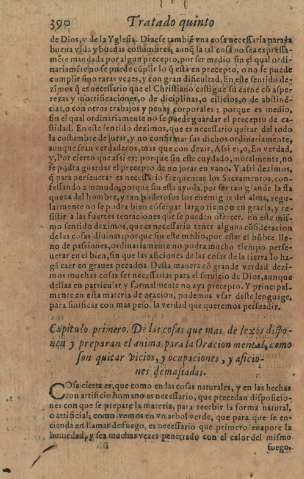 390 Tratado quinto
de Dios, y de la Yglesia. Dizese tambiẽ vna cosa necessaria para la
buena vida y buenas costumbres, aunq̃ la tal cosa no sea expressa-
mẽte mandada por algun precepto, por ser medio sin el qual ordi
nariamẽte no se puede cũplir lo q̃ està en precepto, o no se puede
cumplir sino raras vezes, y con gran dificultad. En este sentido de-
zimos q̃ es necessario que el Christiano castigue su carne cõ aspe-
rezas y mortificaciones, o de disciplinas, o cilicios, o de abstinẽ-
cias, o con otros trabajos y penas corporales: porque es medio,
sin el qual ordinariamente no se puede guardar el precepto de ca-
stidad. En este sentido dezimos, que es necessario quitar del todo
la costumbre de jurar, y no confirmar sus dichos ordinariamente,
aunque sean verdaderos, mas que con dezir, Assi es, o, En verdad,
y, Por cierto que assi es: porque sin este cuydado, moralmente, no
se podra guardar el precepto de no jurar en vano. Y assi dezimos,
q̃ para perseuerar es necessario frequentar los Sacramentos, con-
fessando a menudo, porque sin esta ayuda, por ser tan grande la fla
queza del hombre, y tan poderosos los enemigos del alma, regu-
larmente no se podra bien conseruar largo tiempo en gracia, y re-
sistir a las fuertes tentaciones que se pueden ofrecer. En este mis-
mo sentido dezimos, que es necessario tener alguna consideracion
de las cosas diuinas porque sin este medio, por estar el hõbre lle-
no de passiones, ordinariamente no podra mucho tiempo perse-
uerar en el bien, sin que las aficiones de las cosas de la tierra lo ha
gã caer en graues pecados. Desta manera cõ grande verdad dezi-
mos muchas cosas ser necessarias para el seruicio de Dios, aunque
dellas en particular y formalmente no aya precepto. Y principal-
mente en esta materia de oracion, podemos vsar deste lenguage,
para sinificar con mas peso la verdad que queremos persuadir.
Capitulo primero. De las cosas que mas de lexos dispo-
nen y preparan el anima para la Oracion mental, como
son quitar vicios, y ocupaciones, y aficio-
nes demasiadas.
COsa cierta es, que como en las cosas naturales, y en las hechas
con artificio humano es necessario, que precedan disposicio-
nes con que se prepare la materia, para recebir la forma natural,
o artificial; como vemos en vn arbol verde, que para que se en-
cienda en llamas de fuego, es necessario que primero euapore la
humedad, y sea muchas vezes penetrado con el calor del mismo
fuego.